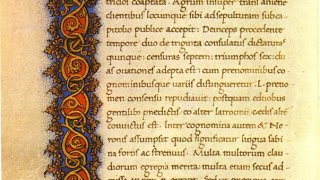 coaptata. Agrum insuper trans aniene
clientibus locumque sibi ad sepulturam sub ca
pitolio publice accepit: Deinceps procedente
tempore duo de triginta consulatus dictaturas
quinque: censuras septem: triumphos sex: du
as ouationes adepta est: cum prenominibus co
gnominibusque uariis distingueretur. L. preno
men consensu repudiauit: postquam e duobus
gentilibus preditis eo alter latrocinii: cedis alte
conuictus est. Inter cognomina autem et ne
ronis assumpsit quod significatur lingua sabi
na fortis ac strenuus. Multa multorum clau
diorum egregia merita: multa etiam secus ad